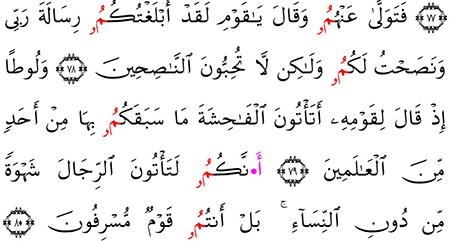 ٧٧ فَتَوَلَّىٰ عَنْهُمُۥ وَقَالَ يَـٰقَوْمِ لَقَدْ أَبْلَغْتُكُمُۥ رِسَالَةَ رَبِّى
وَنَصَحْتُ لَكُمُۥ وَلَـٰكِن لَّا تُحِبُّونَ ٱلنَّـٰصِحِينَ ٧٨ وَلُوطًا
إِذْ قَالَ لِقَوْمِهِۦ أَتَأْتُونَ ٱلْفَـٰحِشَةَ مَا سَبَقَكُمُۥ بِهَا مِنْ أَحَدٍ
مِّنَ ٱلْعَـٰلَمِينَ ٧٩ أَ•نَّكُمُۥ لَتَأْتُونَ ٱلرِّجَالَ شَهْوَةً
مِّن دُونِ ٱلنِّسَآءِ ۚ بَلْ أَنتُمُۥ قَوْمٌ مُّسْرِفُونَ ٨٠